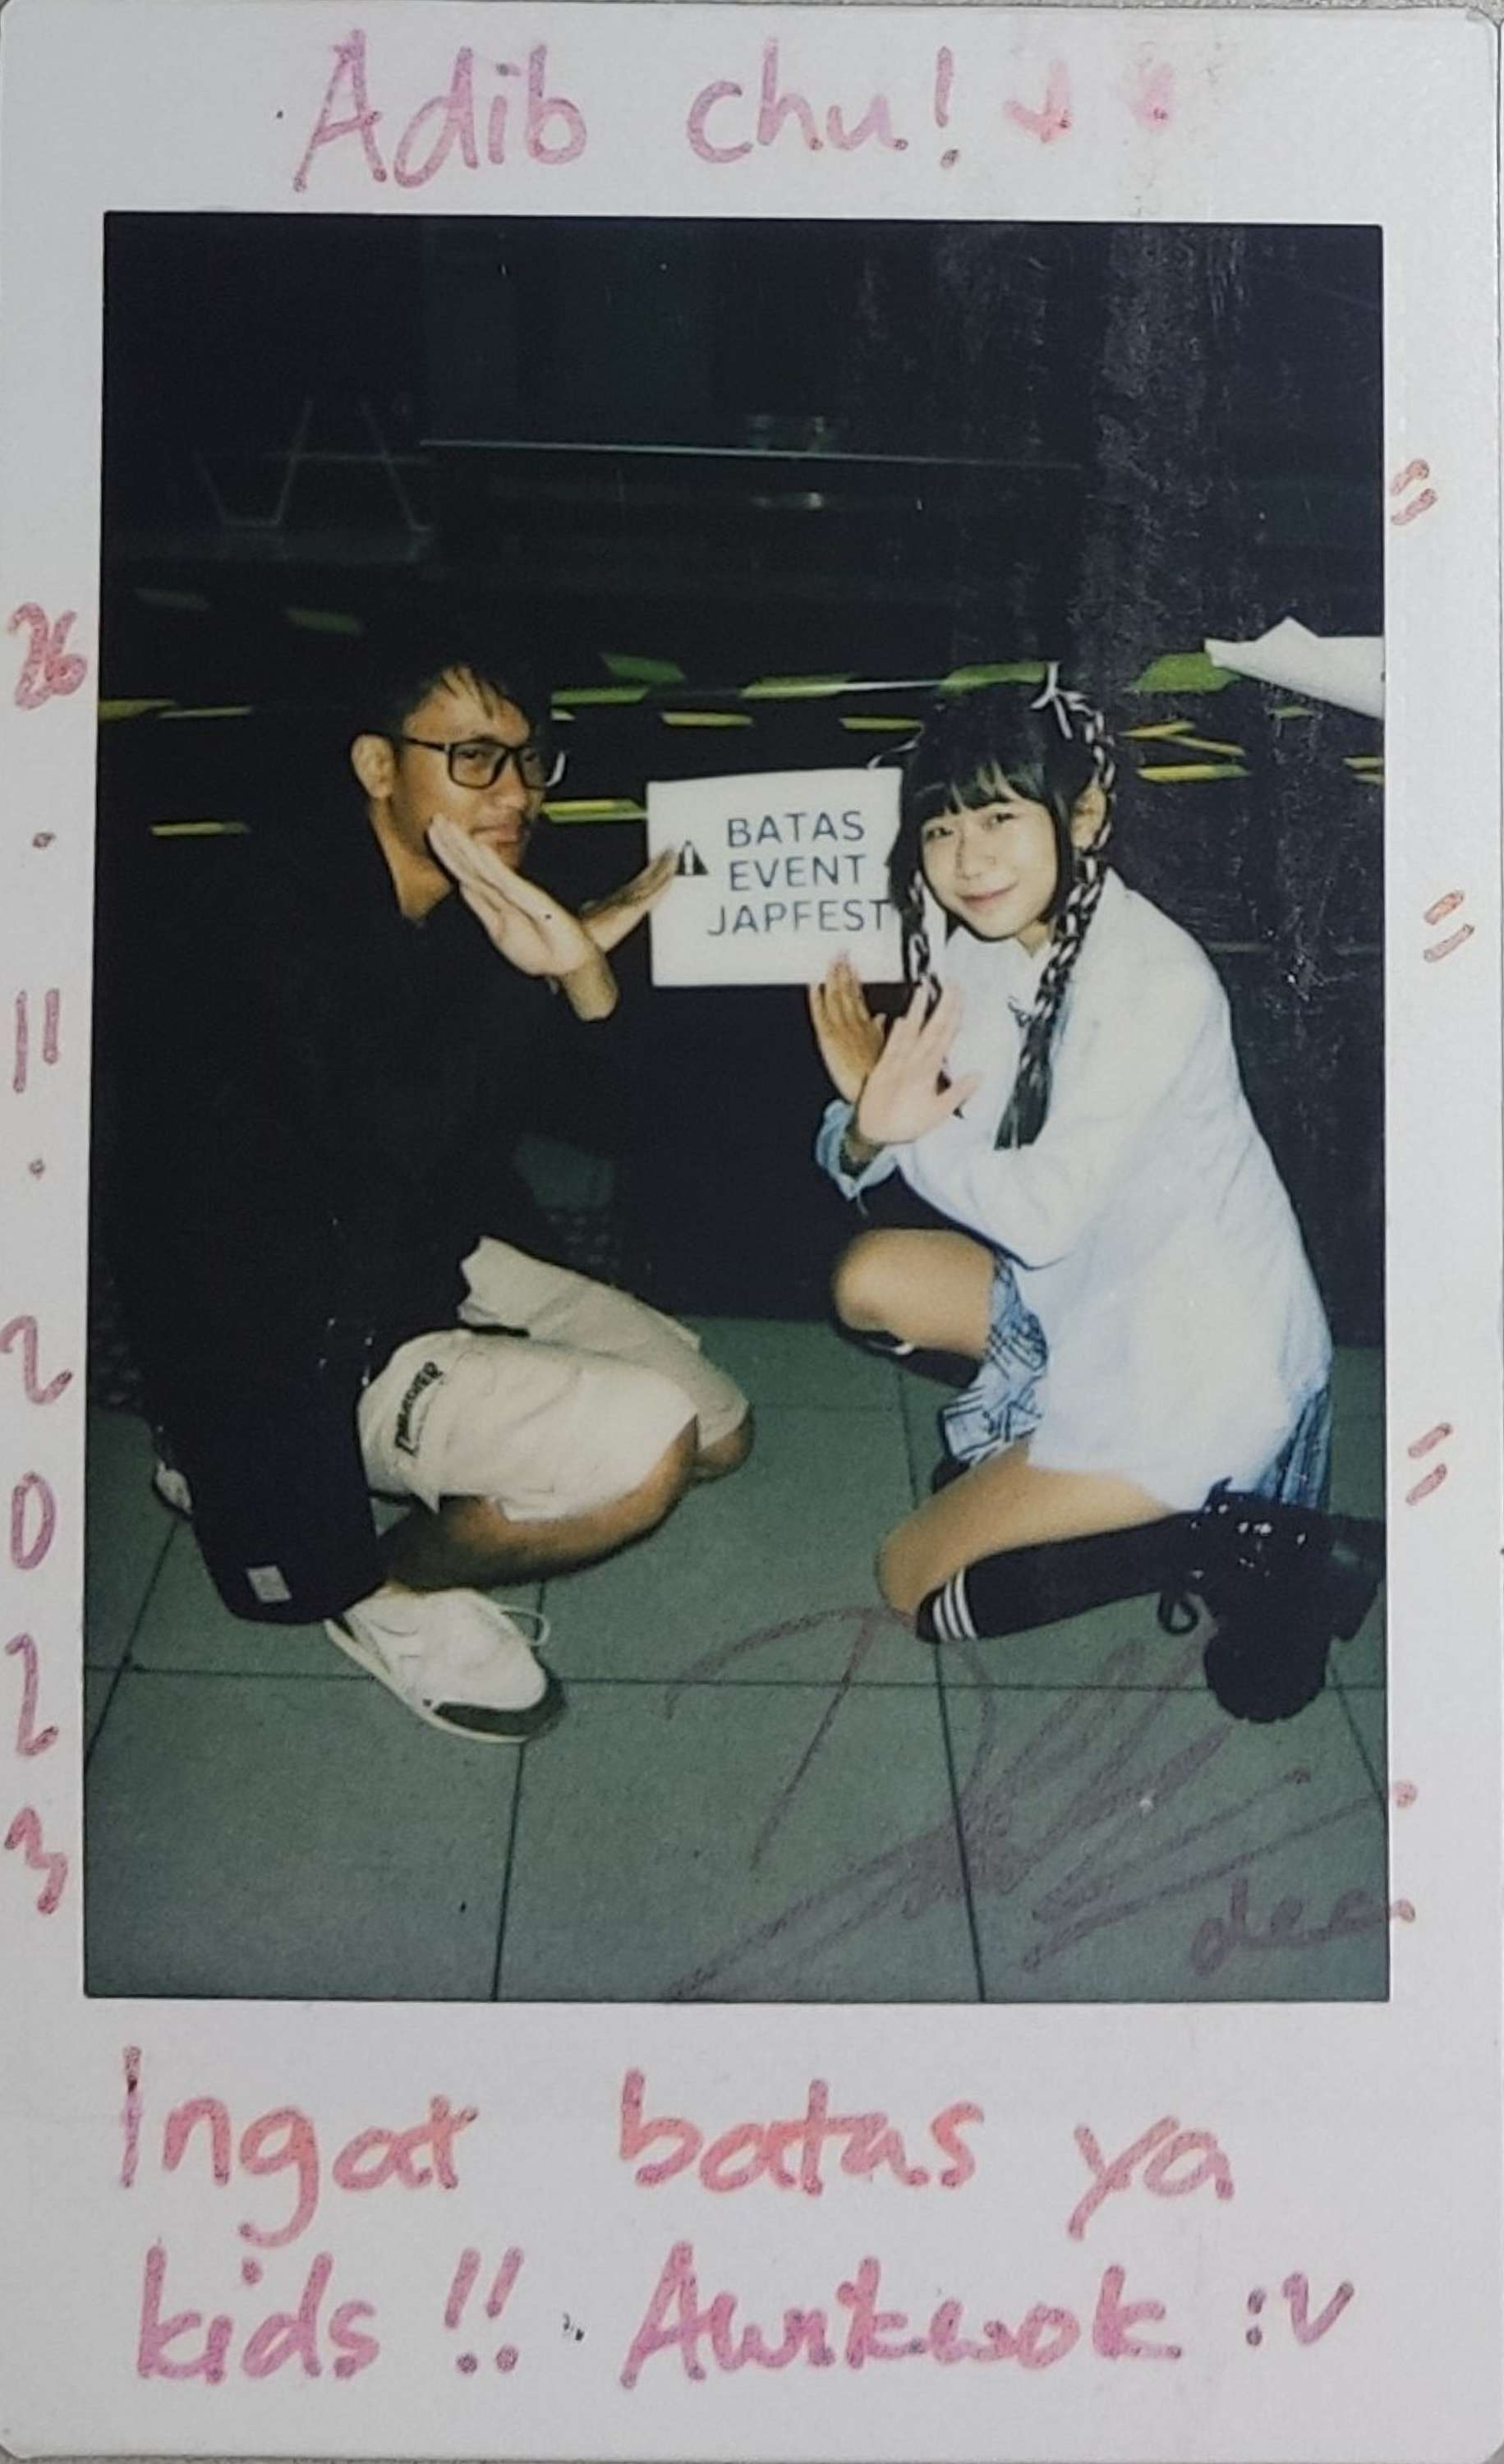 Adib chu!
26.11.2023
BATAS
EVENT
JAPFEST
THRASHER
dee
Ingat batas ya
kids!! Awikwok :v